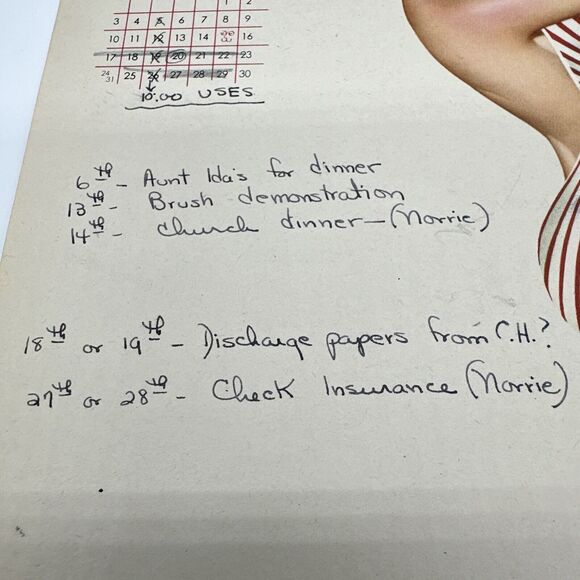 1 2
3 4 5 6 7 8 9
10 11 12 13 14 16
17 18 19 20 21 22 23
24 31 25 26 27 28 29 30
10.00 USES
6th - Aunt Ida's for dinner
13th - Brush demonstration
14th - Church dinner - (Norrie)
18th or 19th - Discharge papers from C.H.?
27th or 28th - Check Insurance (Norrie)